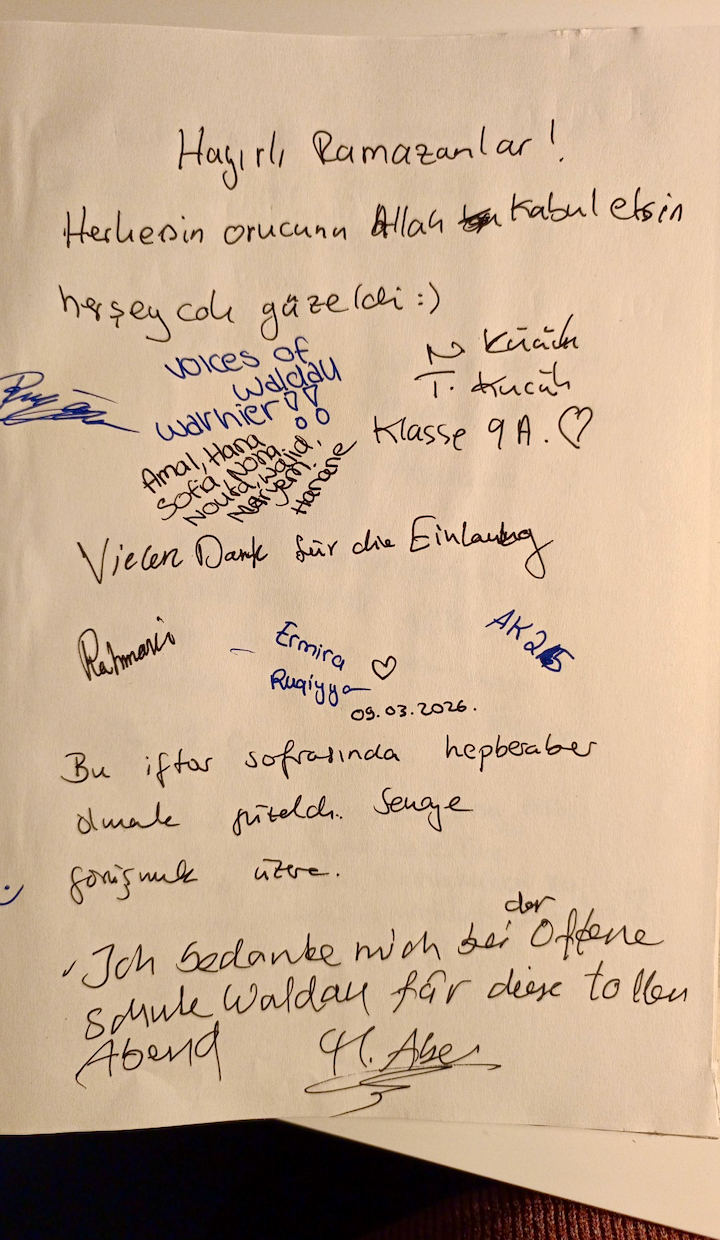 Hayırlı Ramazanlar!
Herkesin orucunu Allah kabul etsin
herşey cok güzeldi :)
voices of
waldau
warnier!!
Amal, Hana
Sofia, Nora,
Noura, Wajid,
Meryem,
Hanane
N Kücük
T. Kücük
Klasse 9A. ♡
Vielen Dank für die Einladung
Rahmani
Ermira ♡
Ruqiyya
AK25
09.03.2026.
Bu iftar sofrasında hepberaber
olmak güzeldi. Seneye
görüşmek üzere.
Ich bedanke mich bei der Offene
Schule Waldau für diese tollen
Abend